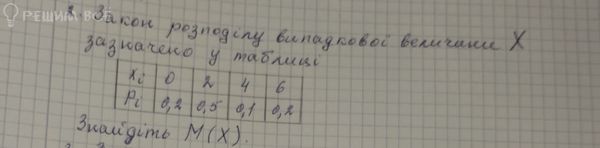 РЕШИМ ВСЁ
Закон розподілу випадкової величини X
зазначено у таблиці
Xi 0 2 4 6
Pi 0,2 0,5 0,1 0,2
Знайдіть M(X).